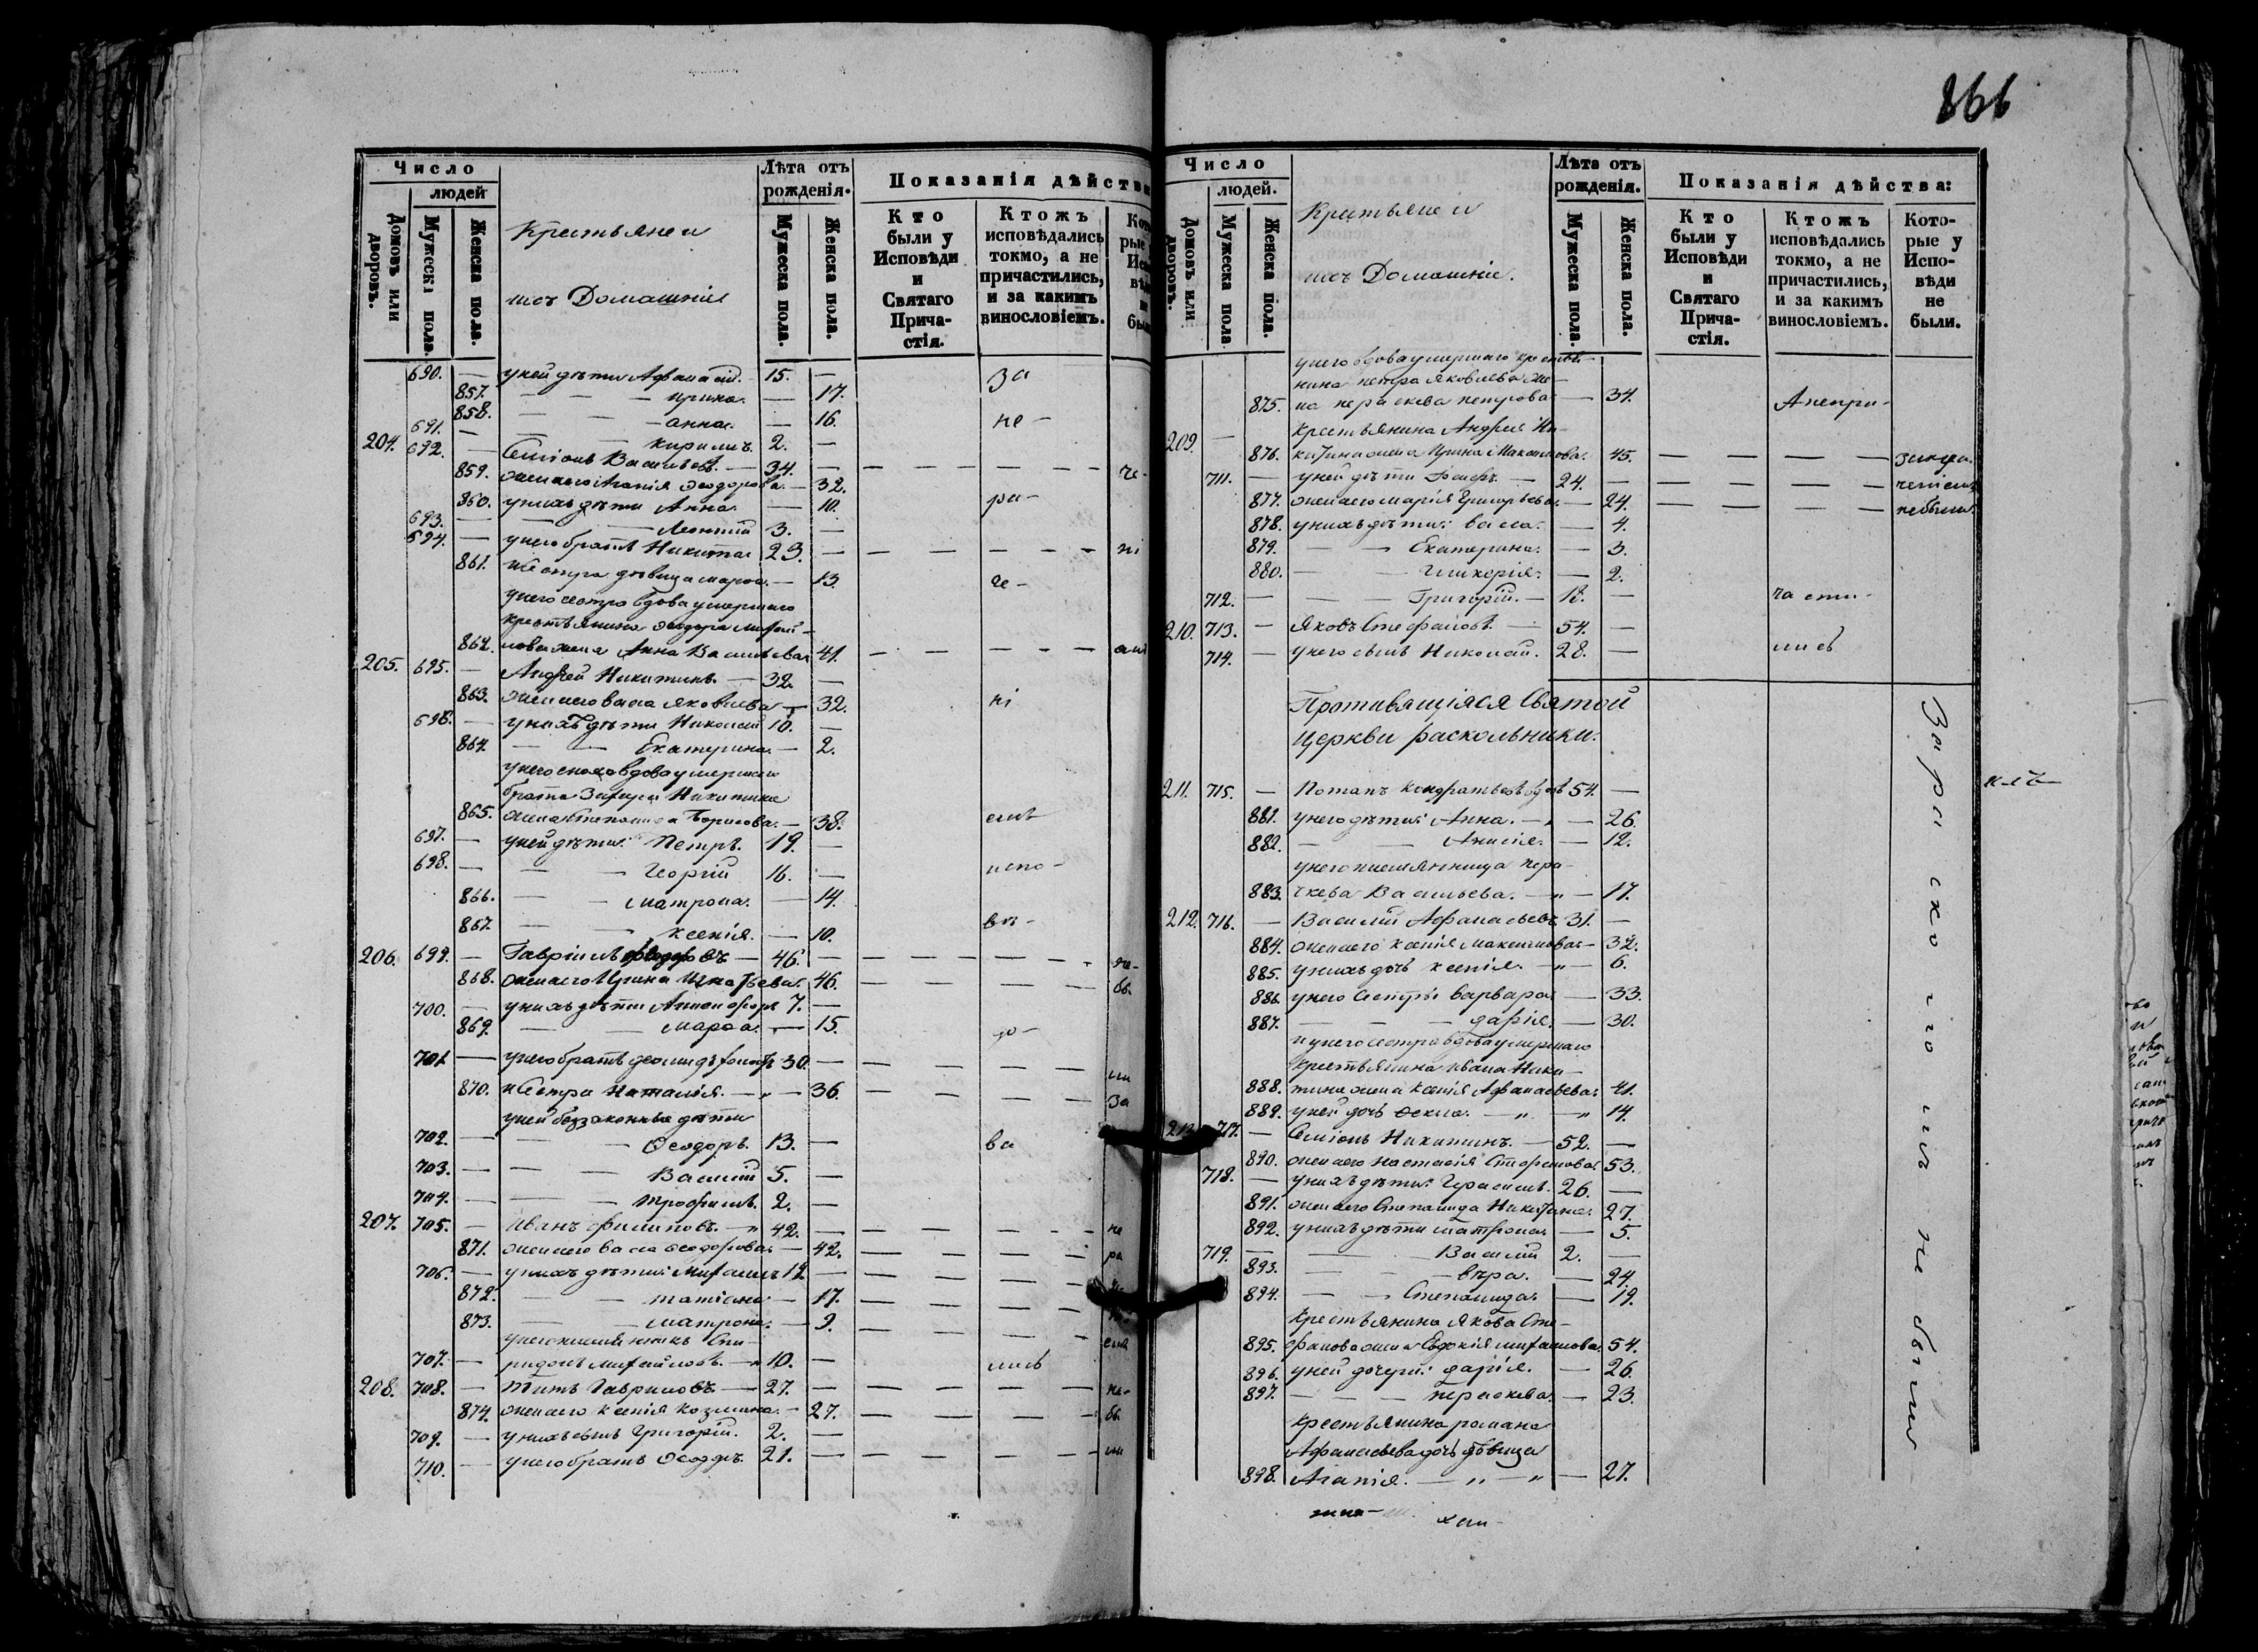 866
Число
людей
Домовъ или дворовъ.
Мужеска пола.
Женска пола.
Крестьяне и
ихъ Домашніе
Лѣта отъ
рожденія.
Мужеска пола.
Женска пола.
Показанія дѣйства
Кто
были у
Исповѣди
и
Святаго
Прича-
стія.
Ктожъ
исповѣдались
токмо, а не
причастились,
и за какимъ
винословіемъ.
690. — у ней дѣти Афанасій. — 15. —
857. — — — Ирина. — 17.
858. — — — Анна. — 16.
691. — — Кирилъ. 2. —
204. 692. — Симіонъ Васильевъ. — 34. —
859. жена его Агапія Ѳеодорова. — 32.
860. у нихъ дѣти Анна. — 10.
693. — — Леонтій 3. —
694. — у него братъ Никита 23. —
861. и Сестра дѣвица Марѳа. — 13.
у него сестра вдова умершаго
крестьянина Ѳеодора Михай-
862. лова жена Анна Васильева 41.
205. 695. — Андрей Никитинъ. — 32. —
863. жена его Васса Яковлева — 32.
696. — у нихъ дѣти Николай 10. —
864. — — Екатерина. — 2.
у него сноха вдова умершаго
брата Захара Никитина
865. жена Степанида Борисова. — 38.
697. — у ней дѣти: Петръ. 19. —
698. — — — Георгій 16. —
866. — — Матрона. — 14.
867. — — Ксенія. — 10.
206. 699. — Гавріилъ Ѳеодоровъ — 46. —
868. жена его Ирина Игнатьева. 46.
700. — у нихъ дѣти Никифоръ 7. —
869. — — Марѳа. — 15.
701. — у него братъ Леонидъ холостъ 30. —
870. и Сестра Наталія. — „ — 36.
у ней беззаконные дѣти
702. — — Ѳеодоръ. 13. —
703. — — Василій 5. —
704. — — Трофимъ. 2. —
207. 705. — Иванъ Филиповъ. — „ 42. —
871. жена его Васса Ѳеодорова — 42.
706. — у нихъ дѣти: Михаилъ 12. —
872. — — Татіана — 17.
873. — — Матрона. — 9.
у него племянникъ Спи-
707. — ридонъ Михайловъ. — „ 10. —
208. 708. — Титъ Гавриловъ — 27. —
874. жена его Ксенія Козмина. — 27.
709. — у нихъ сынъ Григорій. 2. —
710. — у него братъ Ѳеодоръ. 21. —
За
не-
ра-
че-
ні
емъ
испо-
вѣ-
до-
ва
лись
Число
людей.
Домовъ или дворовъ.
Мужеска пола
Женска пола.
Крестьяне и
ихъ Домашніе.
Лѣта отъ
рожденія.
Мужеска пола.
Женска пола.
Показанія дѣйства:
Кто
были у
Исповѣди
и
Святаго
Прича-
стія.
Ктожъ
исповѣдались
токмо, а не
причастились,
и за какимъ
винословіемъ.
Кото-
рые у
Испо-
вѣди
не
были.
у него вдова умершаго крестья-
нина Петра Яковлева же-
875. на Параскева Петрова — 34.
Крестьянина Андрея Ни-
209. — 876. китина жена Ирина Максимова. 45.
711. — у ней дѣти Іосифъ. — 24. —
877. жена его Марія Григорьева. — 24.
878. у нихъ дѣти: Васса. — 4.
879. — — Екатерина. — 3.
880. — — Гликерія. — 2.
712. — — Григорій. — 18. —
210. 713. — Яковъ Стефановъ. — 54. —
714. — у него сынъ Николай. 28. —
А непри-
части-
лись
Противящіяся Святой
Церкви раскольники.
211. 715. — Потапъ Кондратьевъ вдовъ 54. —
881. у него дѣти: Анна. — „ — 26.
882. — — Анисія. — 12.
у него племянница Пара-
883. скева Васильева. — „ — 17.
212. 716. — Василій Афанасьевъ 31. —
884. жена его Ксенія Максимова — 32.
885. у нихъ дочь Ксенія. — „ — 6.
886. у него Сестры Варвара — 33.
887. — — — Дарія. — 30.
и у него сестра вдова умершаго
крестьянина Ивана Ники-
888. тина жена Ксенія Афанасьева. 41.
889. у ней дочь Ѳекла. — „ — „ 14.
213. 717. — Симіонъ Никитинъ. — 52. —
890. жена его Настасія Стефанова. 53.
718. — у нихъ дѣти: Герасимъ. 26. —
891. жена его Степанида Никитина. 27.
892. у нихъ дѣти Матрона. — 5.
719. — — Василій 2. —
893. — — — Вѣра. — 24.
894. — — Степанида. — 19.
Крестьянина Якова Сте-
895. фанова жена Евдокія Михайлова. 54.
896. у ней дочери: Дарія. — 26.
897. — — — Параскева. — 23.
Крестьянина Романа
Афанасьева дочь дѣвица
898. Агапія. — „ — „ — 27.
За расколомъ не были